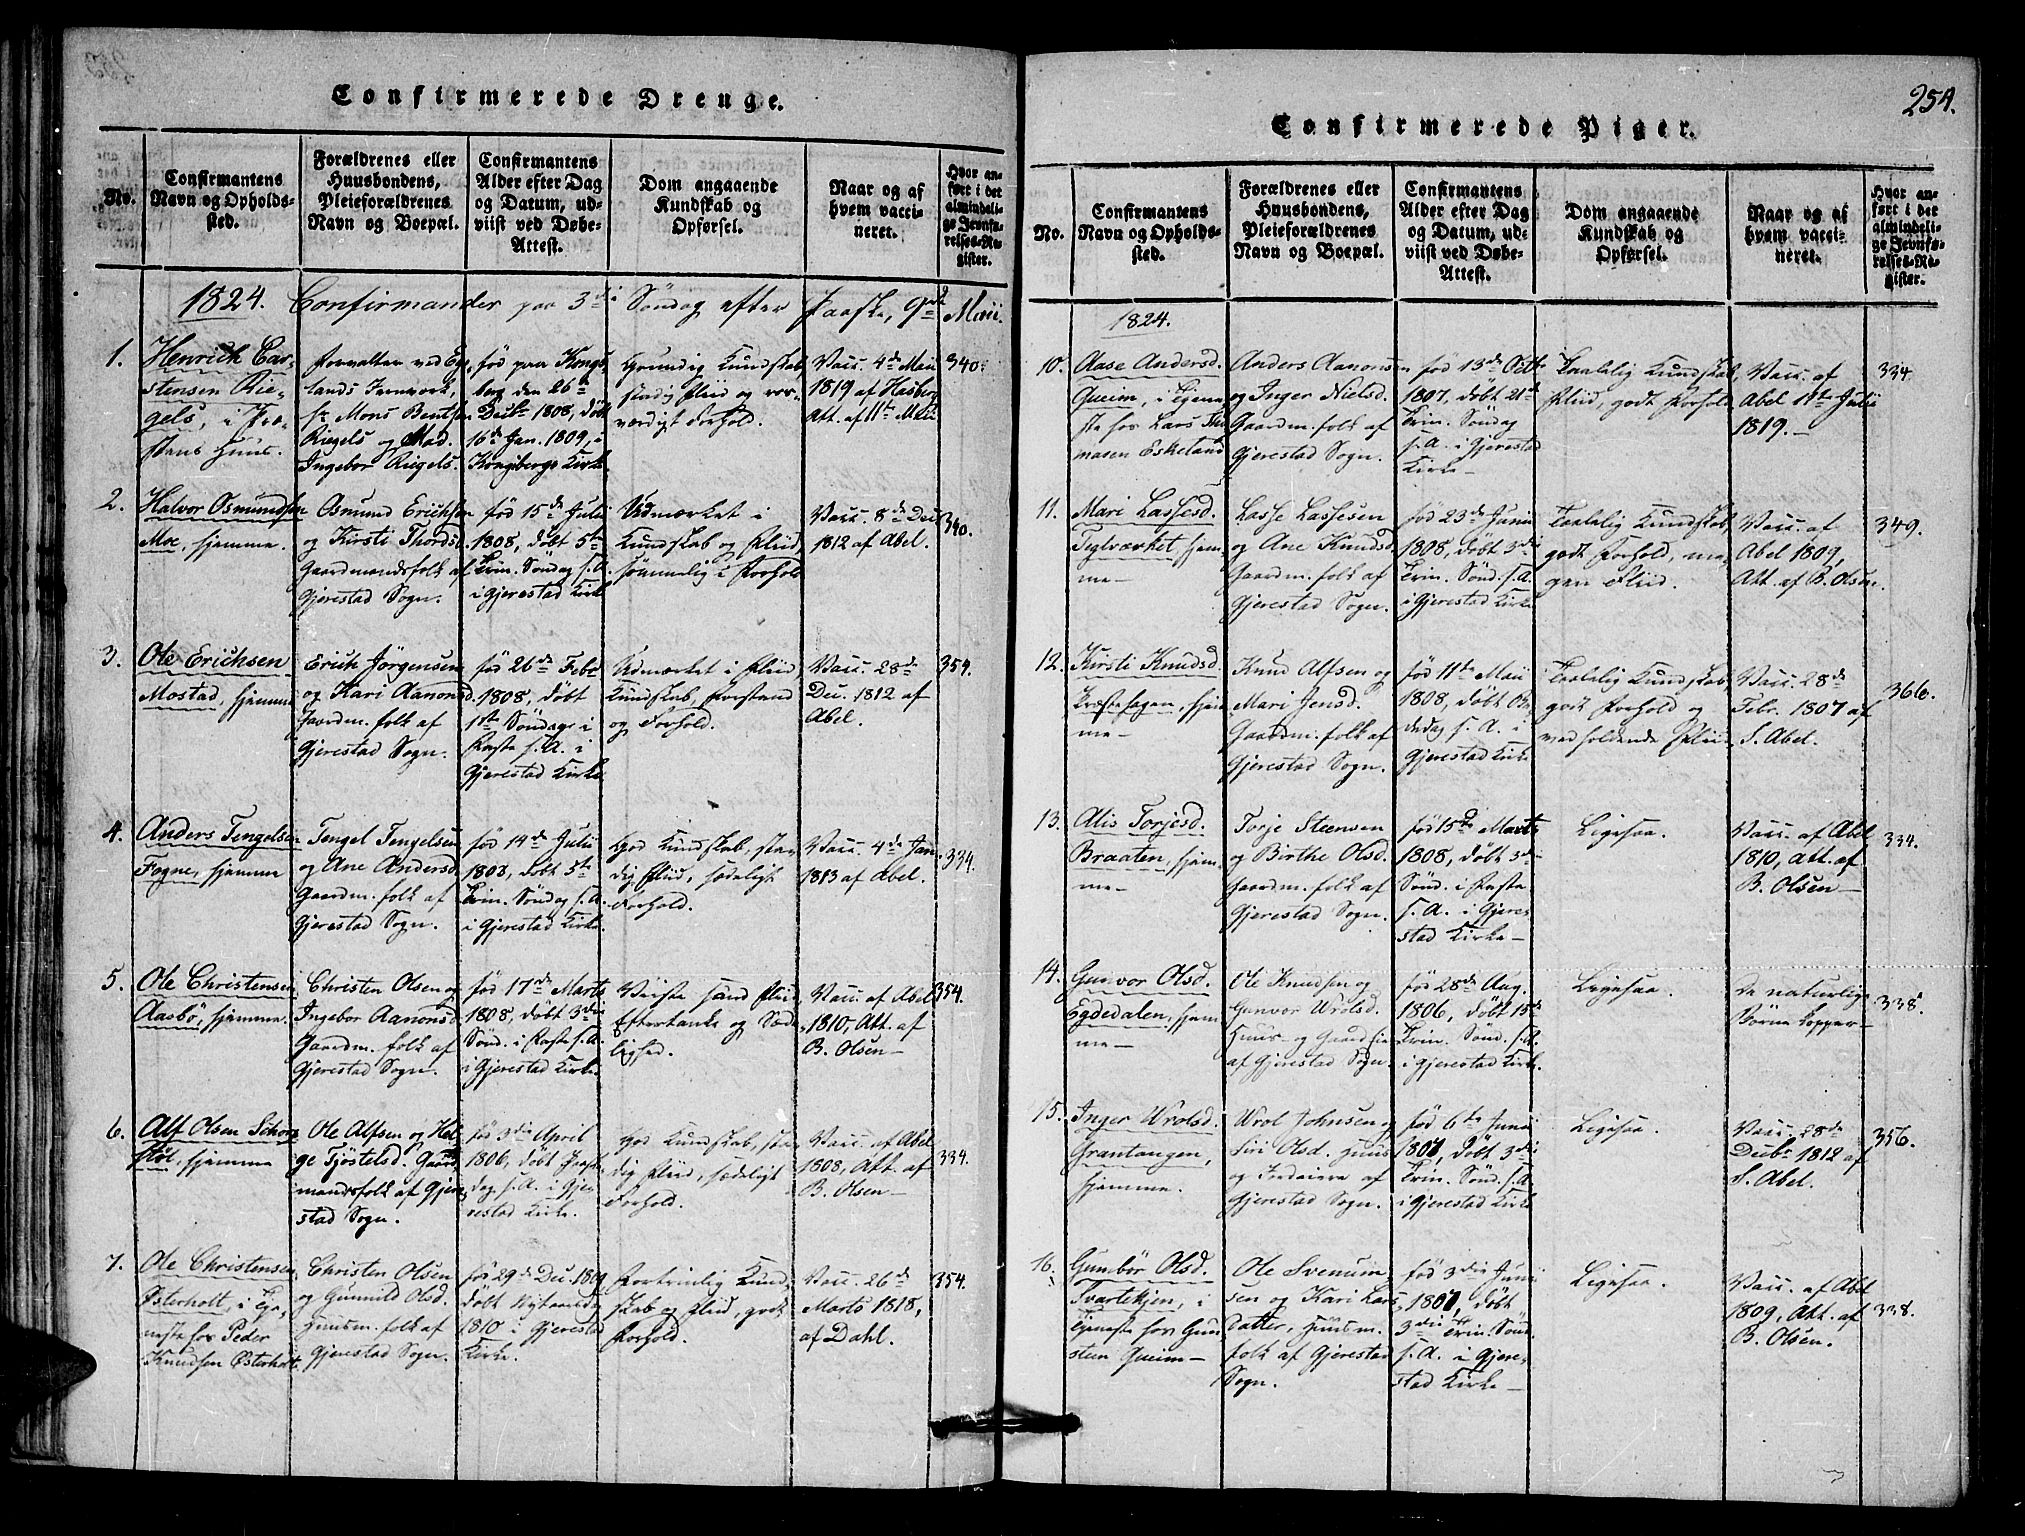 Confirmerede Drenge.
No.
Confirmantens
Navn og Opholds-
sted.
Forældrenes eller
Huusbondens,
Pleieforældrenes
Navn og Boepæl.
Confirmantens
Alder efter Dag
og Datum, ud-
viist ved Døbe-
Attest.
Dom angaaende
Kundskab og
Opførsel.
Naar og af
hvem vacci-
neret.
Hvor an-
ført i det
almindeli-
ge Jevnfø-
relses-Re-
gister.
1824. Confirmander paa 3die Söndag efter Paaske, 9de Maii.
1.
Henrich Car-
stensen Rie-
gels, i Præ-
stens Huus.
forvalter ved Eg-
lands Jernverk,
Sr. Mons Bentsen
Riegels og Mad.
Ingebor Riegels.
født paa Kongs-
berg den 26de
Decbr 1808, døbt
16de Jan. 1809, i
Kongsbergs Kirke
Grundig Kundskab,
stadig Fliid og vær-
værdigt Forhold.
Vacc. 4de Maii
1819 af Hasberg
Att. af 11te Maii
340.
2.
Halvor Osmundsen
Moe, hjemme.
Osmund Erichsen
og Kirsti Thordsd.
Gaardmandsfolk af
Gjerestad Sogn.
fød 15de Julii
1808, døbt 5te
Trin. Söndag s. A.
i Gjerestad Kirke
Udmærket i
Kundskab og Fliid,
sømmelig i Forhold
Vacc. 8de Dec.
1812 af Abel.
340.
3.
Ole Erichsen
Mostad, hjemme
Erich Jörgensen
og Kari Aanonsd.
Gaardm. folk af
Gjerestad Sogn.
fød 26de Febr
1808, døbt
1ste Söndag i
Faste s. A. i
Gjerestad Kirke
Udmærket i Fliid,
Kundskab, Forstand
og Forhold.
Vacc. 28de
Dec. 1812 af
Abel.
354.
4.
Anders Tengelsen
Fogne, hjemme
Tengel Tengelsen
og Ane Andersd.
Gaardm. folk af
Gjerestad Sogn.
fød 14de Julii
1808, døbt 5te
Trin. Söndag s. A.
i Gjerestad Kirke.
God Kundskab, sta-
dig Fliid, sædeligt
Forhold.
Vacc. 4de Jan.
1813 af Abel.
334.
5.
Ole Christensen
Aasbø, hjemme.
Christen Olsen og
Ingebor Aanonsd.
Gaardm. folk af
Gjerestad Sogn.
fød 17de Marts
1808, døbt 3die
Sönd. i Faste s. A.
i Gjerestad Kirke.
Viiste sand Fliid,
Eftertanke og Sæde-
lighed.
Vacc. af Abel
1810, Att. af
B. Olsen—
354.
6.
Alf Olsen
hjemme
Ole Alfsen og Hel-
ge Tjöstelsd. Gaard-
mandsfolk af Gjere-
stad Sogn.
fød 3die April
1806, døbt Paaske-
dag s. A. i Gje-
restad Kirke.
God Kundskab, sta-
dig Fliid, sædeligt
Forhold.
Vacc. af Abel
1808, Att. af
B. Olsen—
334.
7.
Ole Christensen
Østerholt, i Tje-
neste hos Peder
Knudsen Østerholt.
Christen Olsen
og Gunnild Olsd.
Huusm. folk af
Gjerestad Sogn.
fød 29de Dec. 1809
døbt Nytaarsdag
1810 i Gjerestad
Kirke.
Fortrinlig Kund-
skab og Fliid, godt
Forhold.
Vacc. 26de
Marts 1818,
af Dahl.
354.
254.
Confirmerede Piger.
No.
Confirmantens
Navn og Opholds-
sted.
Forældrenes eller
Huusbondens,
Pleieforældrenes
Navn og Boepæl.
Confirmantens
Alder efter Dag
og Datum, ud-
viist ved Døbe-
Attest.
Dom angaaende
Kundskab og
Opførsel.
Naar og af
hvem vacci-
neret.
Hvor an-
ført i det
almindeli-
ge Jevnfø-
relses-Re-
gister.
1824.
10.
Aase Andersd.
Qveim, i Tjene-
ste hos Lars Tho-
masen Eskeland
Anders Aanonsen
og Inger Nielsd.
Gaardm. folk af
Gjerestad Sogn.
fød 13de Octbr
1807, døbt 21de
Trin. Söndag
s. A. i Gjerestad
Kirke—
Taalelig Kundskab,
Fliid, godt Forhold
Vacc. af
Abel 11te Julii
1819.—
334.
11.
Mari Lassesd.
Teglværket, hjem-
me—
Lasse Lassesen
og Ane Knudsd.
Gaardm. folk af
Gjerestad Sogn.
fød 23de Junii
1808, døbt 3die
Trin. Sönd. s. A.
i Gjerestad Kirke
Taalelig Kundskab,
godt Forhold, me-
gen Fliid.
Vacc. af
Abel 1809,
Att. af B. Olsen.
349.
12.
Kirsti Knudsd.
hjem-
me—
Knud Alfsen og
Mari Jensd.
Gaardm. folk af
Gjerestad Sogn.
fød 11te Maii
1808, døbt Be-
dedag s. A. i
Gjerestad Kirke
Taalelig Kundskab,
godt Forhold og
vedholdende Fliid
Vacc. 28de
Febr. 1807 af
S. Abel.
366.
13.
Alis Torjesd.
Braaten, hjem-
me—
Torje Steensen
og Birthe Olsd.
Gaardm. folk af
Gjerestad Sogn.
fød 15de Marts
1808, døbt 3die
Sönd. i Faste
s. A. i Gjere-
stad Kirke—
Ligesaa.
Vacc. af Abel
1810, Att. af
B. Olsen—
334.
14.
Gunvor Olsd.
Egdedalen, hjem-
me—
Ole Knudsen og
Gunvor Wrolsd.
af Gjerestad Sogn.
fød 28de Aug.
1806, døbt 15de
Trin. Sönd. s. A.
i Gjerestad Kirke.
Ligesaa.
De naturlige
Börne Kopper—
338.
15.
Inger Wrolsd.
Grantangen,
hjemme.
Wrol Johnsen og
Siri Olsd. Huus
og Jordeiere af
Gjerestad Sogn.
fød 6te Junii
1807, døbt 3die
Trin. Sönd. s. A.
i Gjerestad Kirke
Ligesaa.
Vacc. 28de
Decbr 1812 af
S. Abel.
356.
16.
Gunbör Olsd.
Svartekjen, i
Tjeneste hos Gun-
sten Qveim—
Ole Svenum-
sen og Kari Lars-
datter, Huusm.
folk af Gjerestad
Sogn.
fød 3die Junii
1807, døbt
3die Trin. Sönd.
s. A. i Gjere-
stad Kirke—
Ligesaa.
Vacc. af Abel
1809, Att. af
B. Olsen.
338.